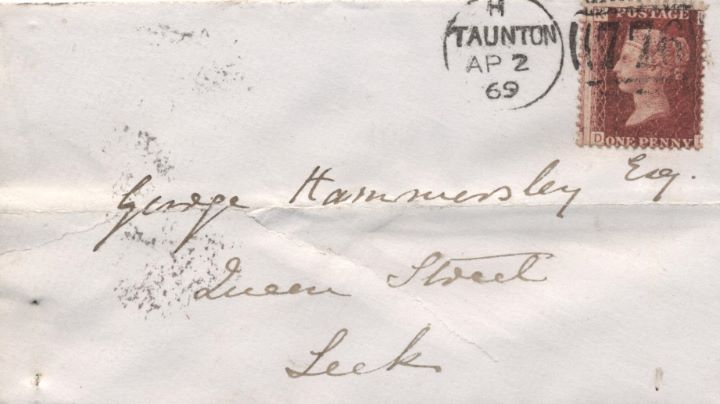 H
TAUNTON
AP 2
69
POSTAGE
D ONE PENNY
George Hammersley Esq.
Queen Street
Leek